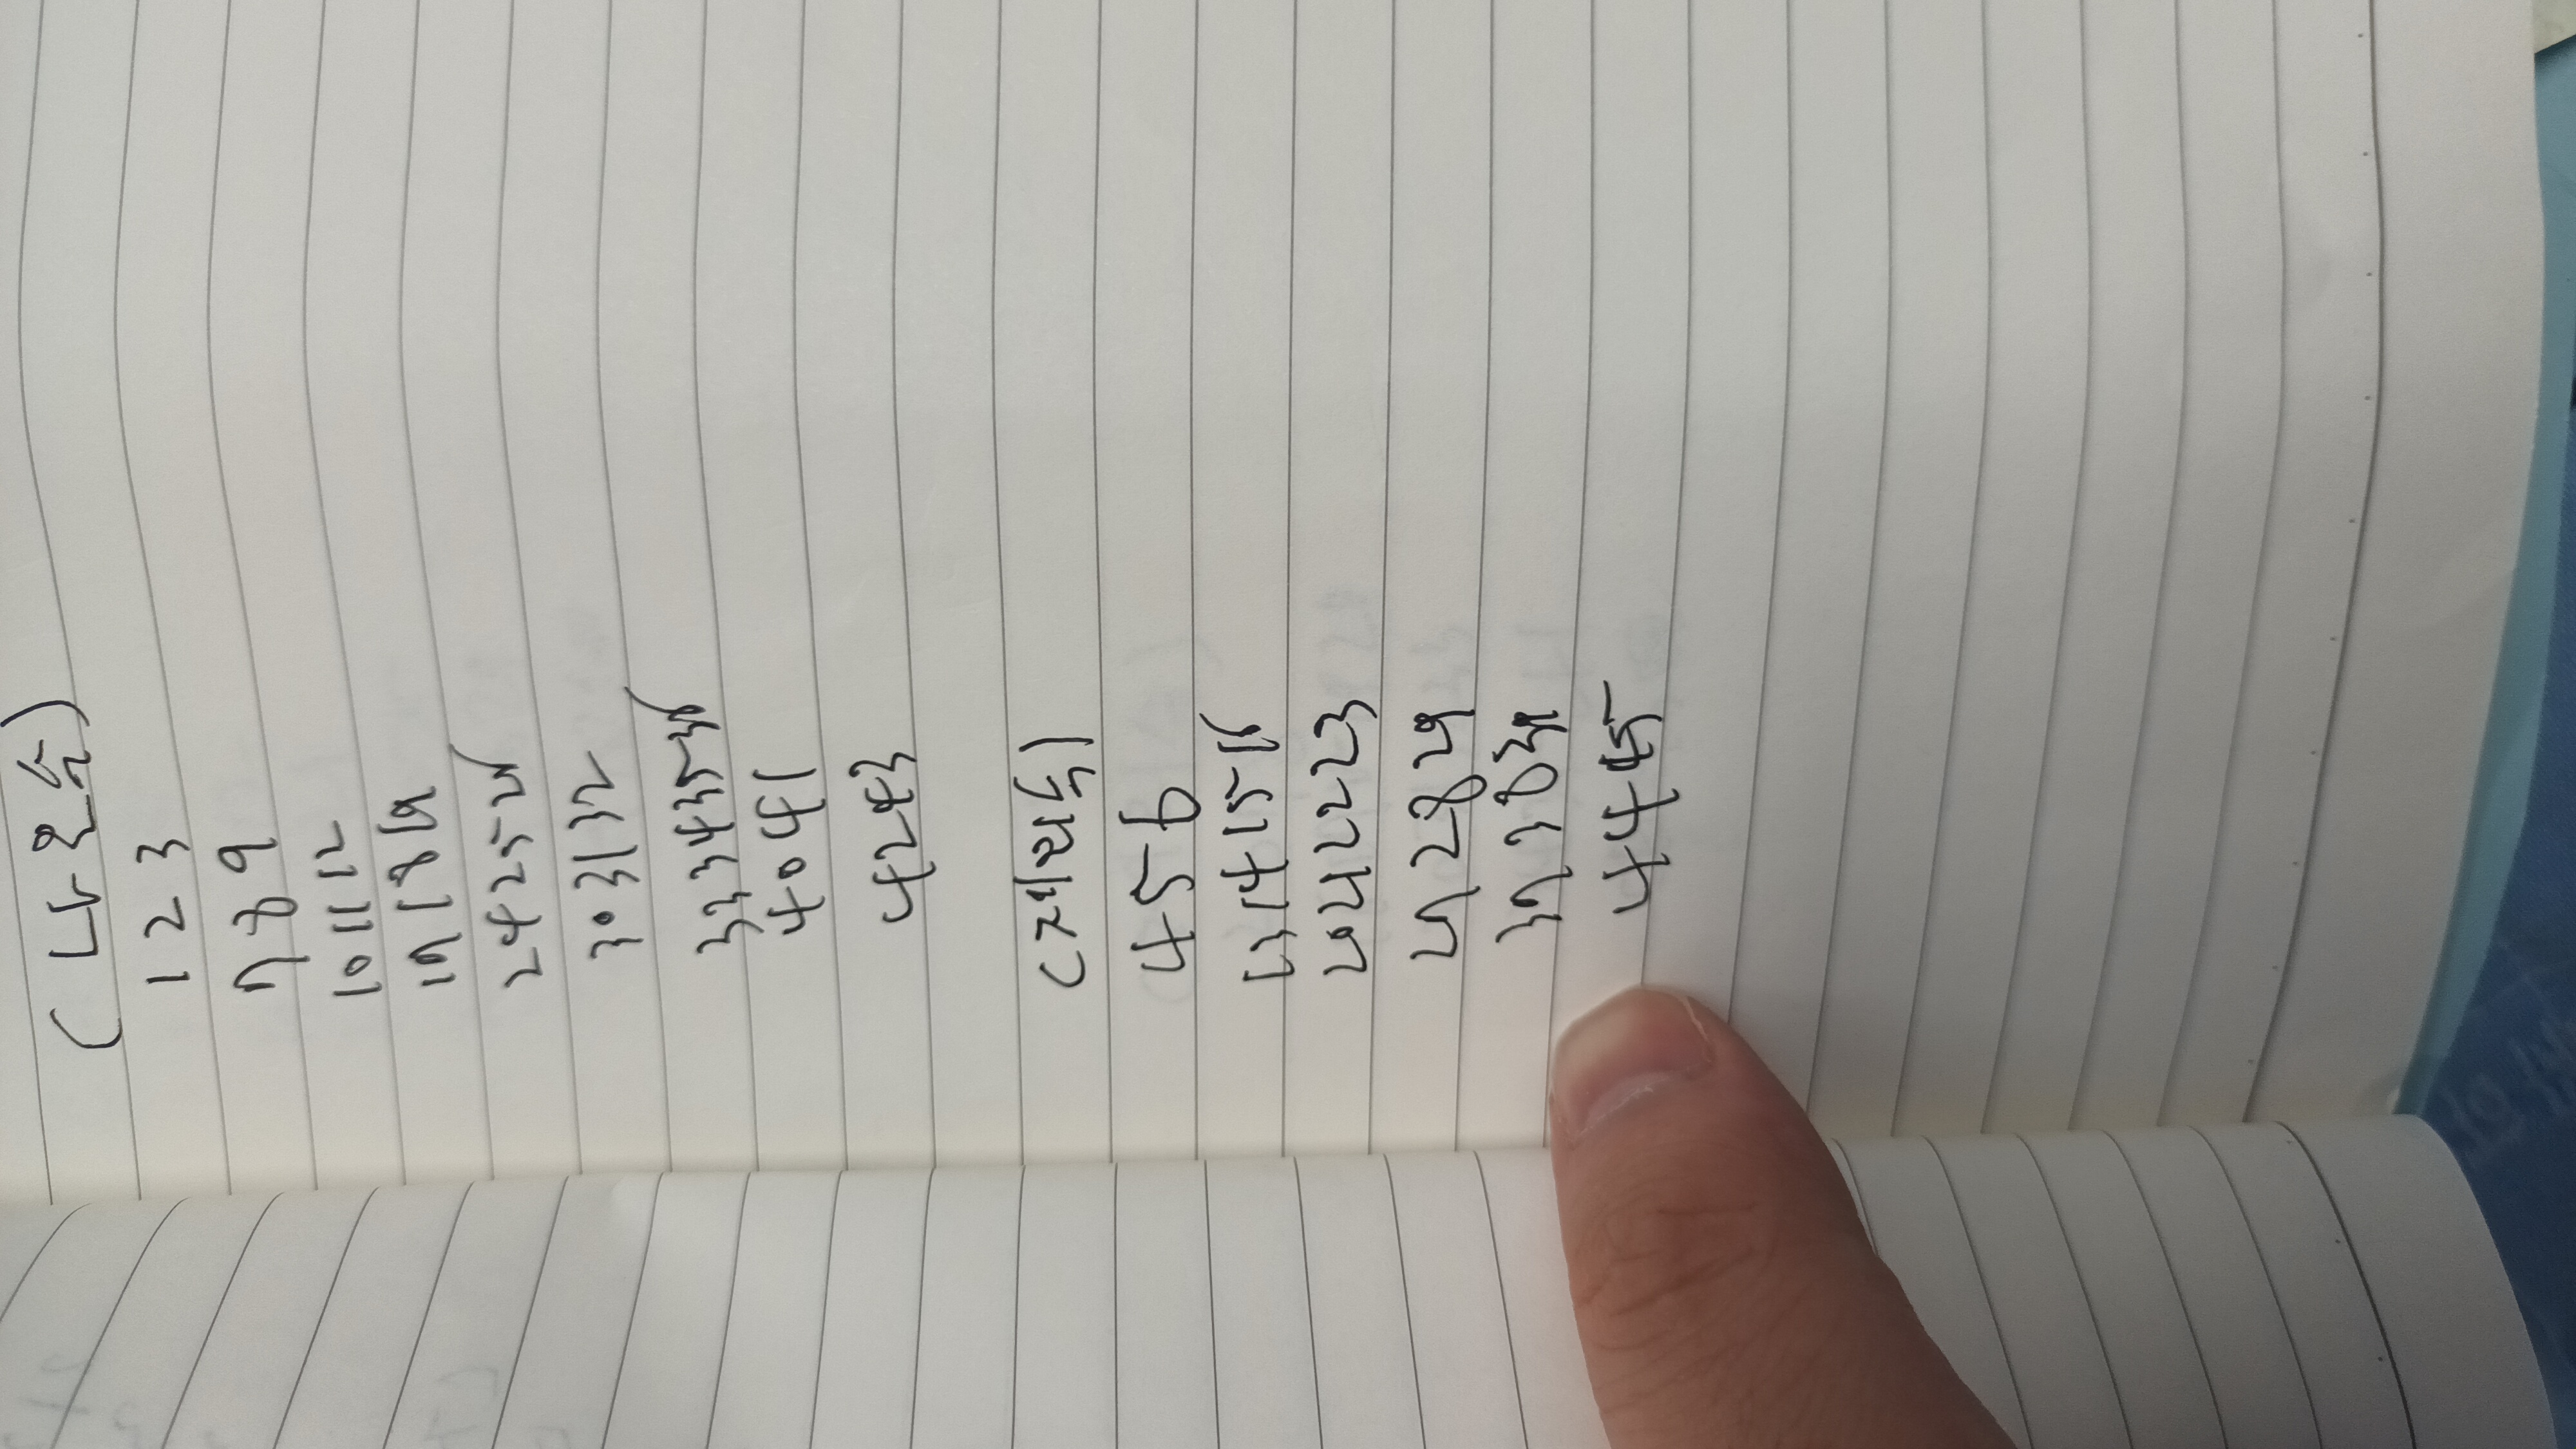 (나오득)
1 2 3
7 8 9
10 11 12
17 18 19
24 25 26
30 31 32
33 34 35 36
40 41
42 43
4 5 6
13 14 15 16
20 21 22 23
27 28 29
37 38 39
44 45